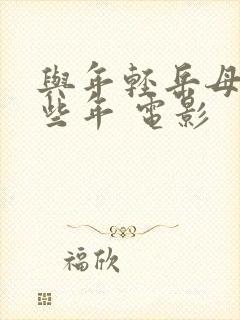 與年輕岳母
些年 電影
福欣